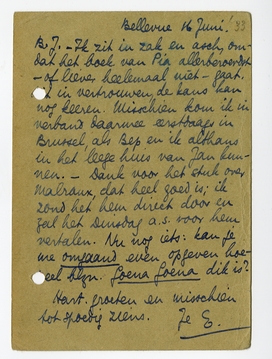 Bellevue 16 Juni '33
B. J. - Ik zit in zak en asch, om-
dat het boek van Pia allerberoerdst
- of liever heelemaal niet - gaat.
in vertrouwen, de kans kan
nog keeren. Misschien kom ik in
verband daarmee eerstdaags in
Brussel, als Bep en ik althans
in het leege huis van Jan kun-
nen. - Dank voor het stuk over
Malraux, dat heel goed is; ik
zond het hem direct door en
zal het Dinsdag a.s. voor hem
vertalen. Nu nog iets: kan je
me omgaand even opgeven hoe-
veel blzn. Goena Goena dik is?
Hart. groeten en misschien
tot spoedig ziens. Je E.